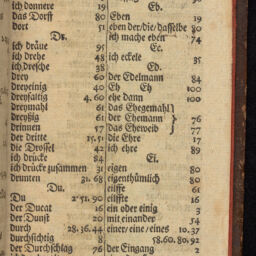 ich donnere 19
das Dorff 80
dort 51
Dr.
ich dräue 95
ich drehe 48
ich dresche 38
drey 60
dreyeinig 40
dreyfaltig 4. 60
dreymahl 61
dreyßig 61
drinnen 57
der dritte 15. 51
die Drossel 42
ich drücke 84
ich drücke zusammen 31
drunten 31. 68
Du.
Du 2. 51. 90
der Ducat 16
der Dunst 20
durch 28. 36. 44
durchsichtig 8
der Durchschlag 76
Eb.
Eben 19
eben der/die/dasselbe 80
ich mache eben 74
Ec.
ich eckele 35
Ed.
der Edelmann 84
Eh Eh 100
ehe dann 100
das Ehegemahl
der Ehemann } 76
das Eheweib } 77
die Ehre 17
ich ehre 89
Ei.
eigen 80
eigenthümlich 80
eilffe 61
eilffte 61
ein oder einig 3
mit einander 54
einer/eine/eines 10. 37
58. 60. 80. 92
der Eingang 2